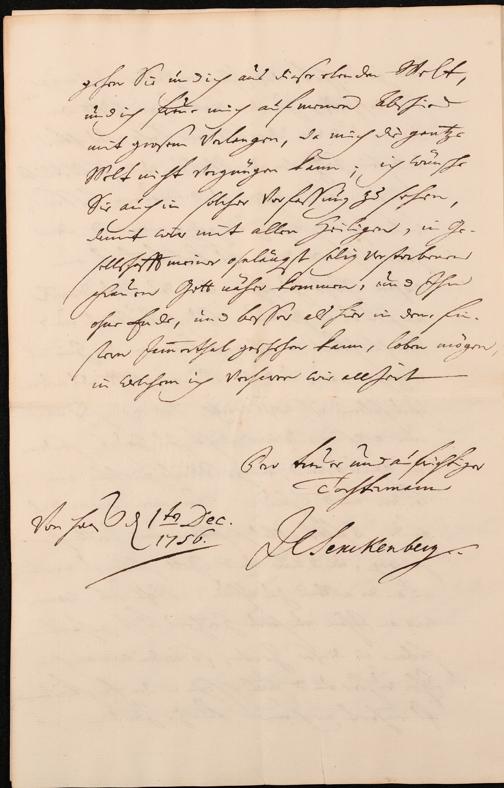 gehen Sie und ich aus dieser elenden Welt,
und ich freue mich auf meinen Abschied
mit grosem Verlangen, da mich die gantze
Welt nicht vergnügen kann; ich wünsche
Sie auch in solcher Verfassung zu sehen,
damit wir mit allen Heiligen, in Ge-
sellschafft meiner ohnlängst selig verstorbenen
Frauen Gott näher kommen, und Ihn
ohne Ende, und besser als hier in dem fin-
stern Jammerthal geschehen kann, loben mögen,
in welchem ich verharre wie allzeit
Der treue und aufrichtige
Von Hauß d 1ten Dec.
1756.
JC Senckenberg.